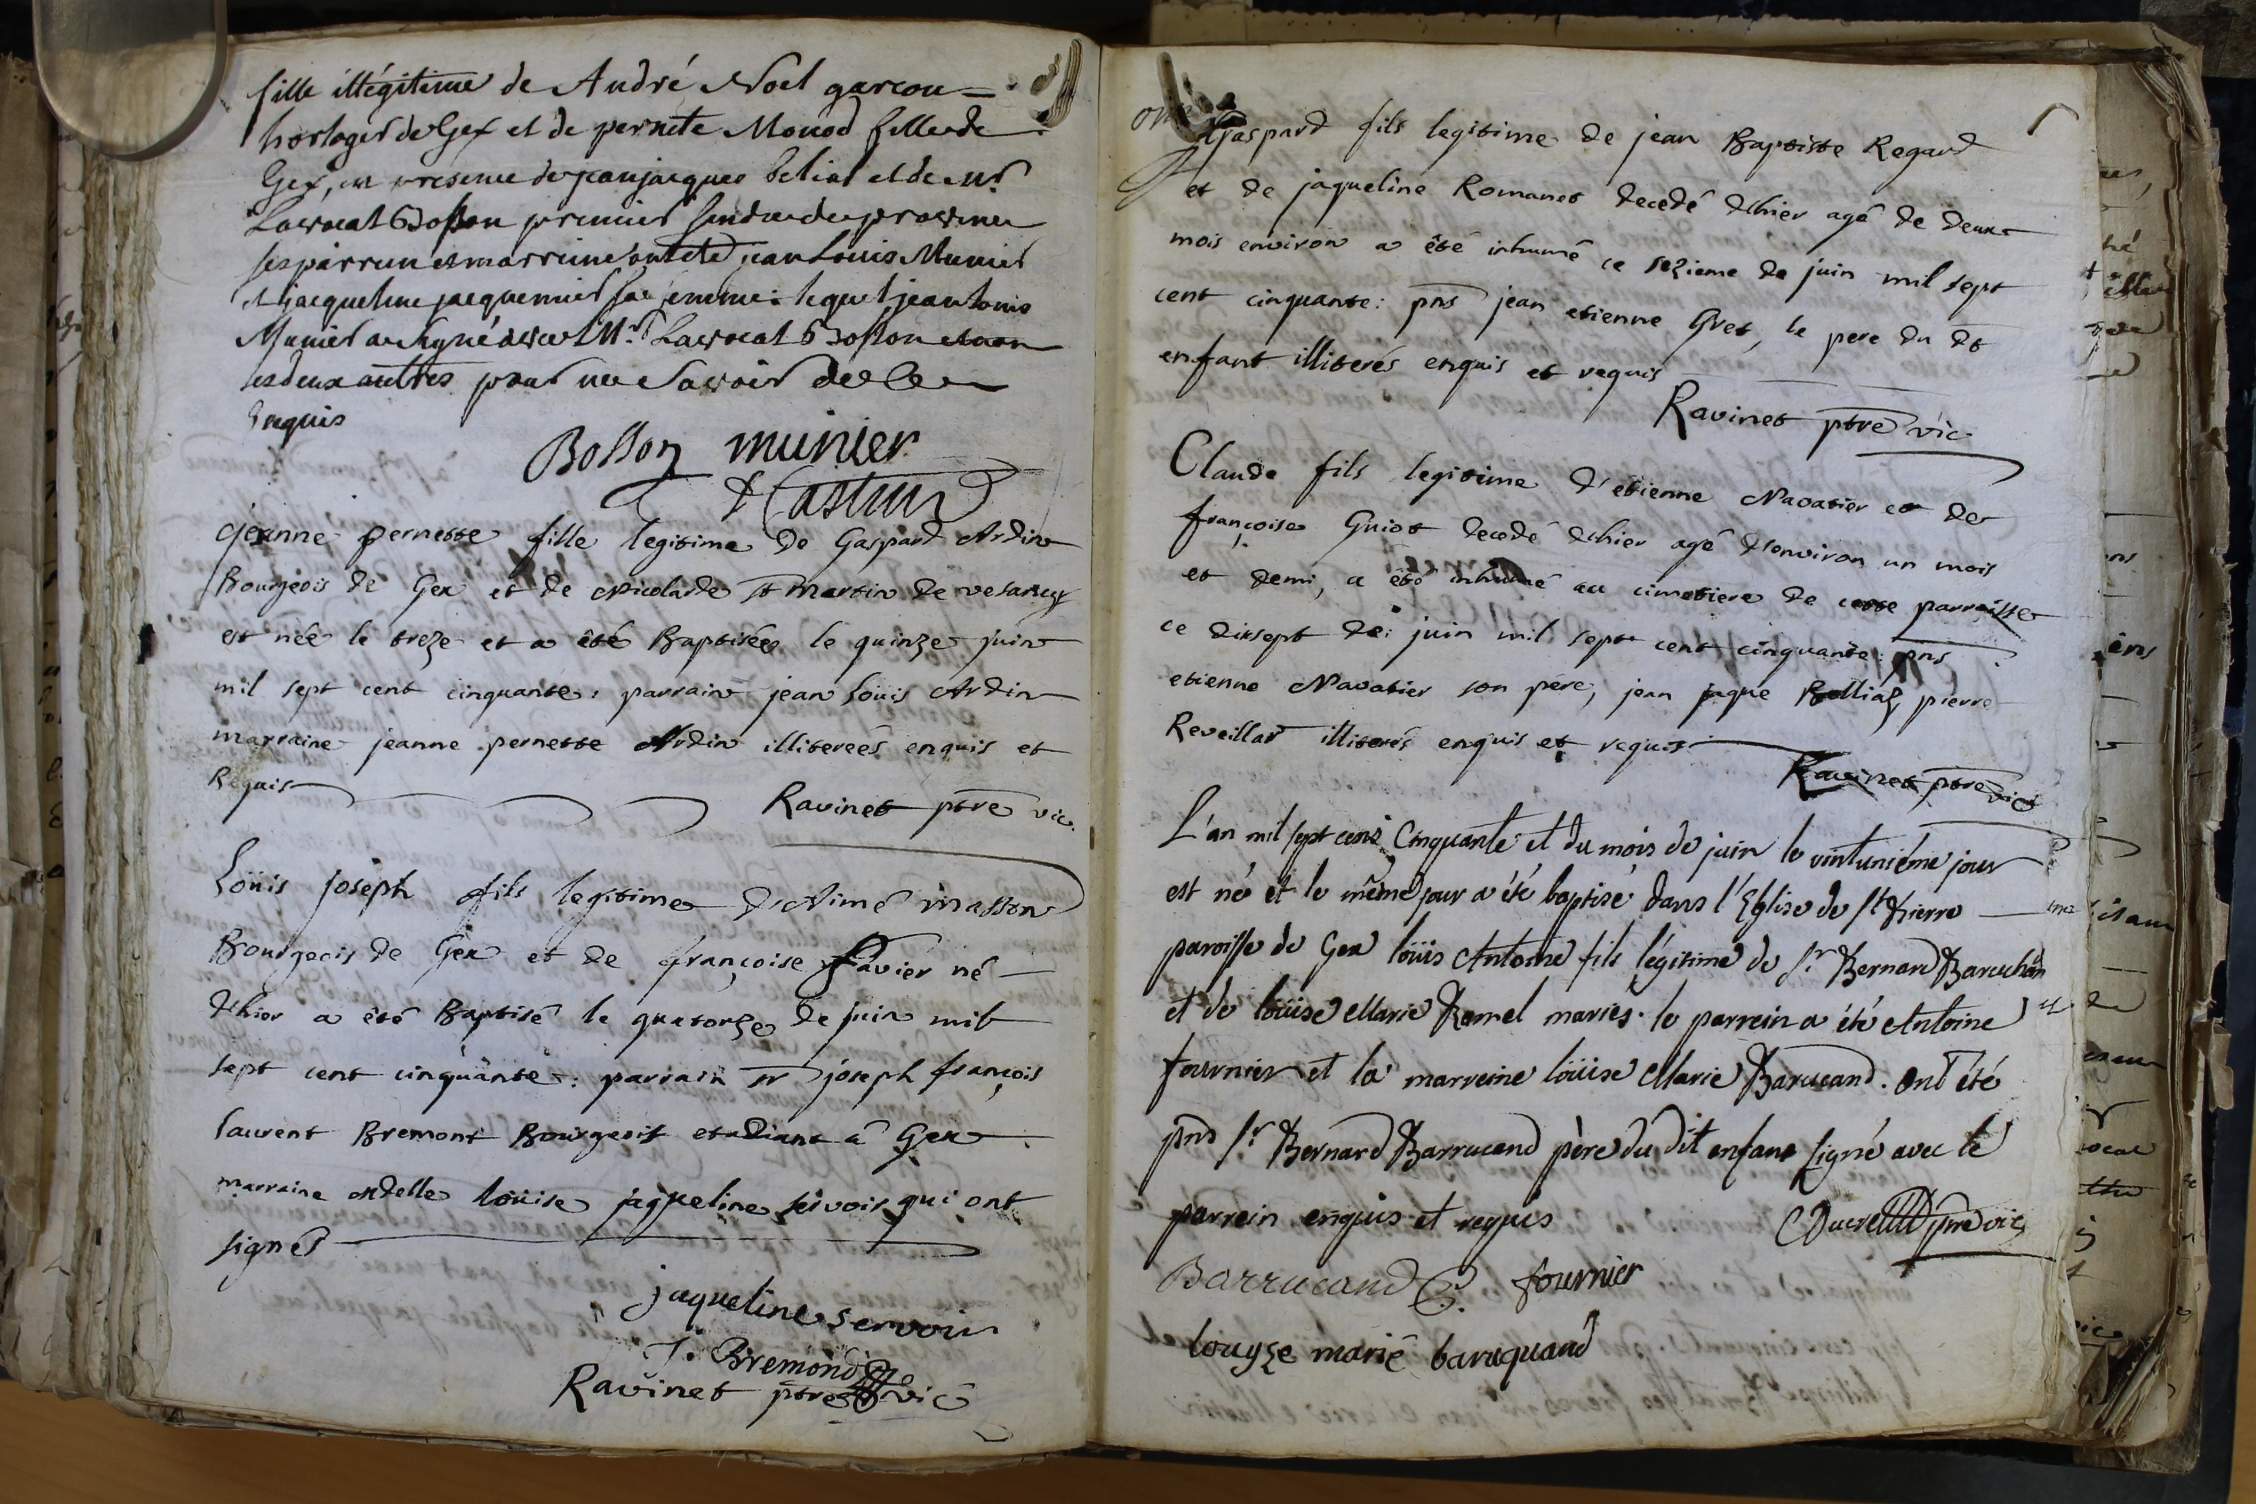 fille illégitime de André Noel garcon
horloger de Gex et de pernete Monod fille de
Gex, en presence de jean jacques belias et de mr
Lavocat Bosson premier sindic de province
ses parrein et marreine ont eté jean Louis Munier
et jacqueline jacquemier sa femme: lequel jean louis
Munier a signé avec Mr. Lavocat Bosson et non
les deux autres pour ne savoir de ce
Enquis
Bosson munier
Castin
jeanne pernette fille legitime de Gaspard Ardin
Bourgeois de Gex et de Nicolarde st martin de vesancy
est née le treze et a été Baptisée le quinze juin
mil sept cent cinquante: parrain jean Loüis Ardin
marraine jeanne pernette Ardin illitereés enquis et
Requis
Ravinet ptre vic.
Loüis joseph fils legitime d'Aimé masson
Bourgeois de Gex et de françoise favier né
d'hier a été Baptisé le quatorze de juin mil
sept cent cinquante: parrain sr joseph françois
laurent Bremont Bourgeois etudiant à Gex
marraine delle loüise jaqueline servois qui ont
signés
jaqueline servoin
J. Bremond
Ravinet ptre vic
Gaspard fils legitime de jean Baptiste Regard
et de jaqueline Romanet decedé d'hier agé de deux
mois environ a été inhumé ce sezieme de juin mil sept
cent cinquante: pns jean etienne Gret, le pere du dt
enfant illiterés enquis et requis
Ravinet ptre vic
Claude fils legitime d'etienne Navatier et de
françoise Guiot decedé d'hier agé d'environ un mois
et demi, a été inhumé au cimetiere de cette parroisse
ce dixsept de juin mil sept cent cinquante: pns
etienne Navatier son père, jean jaque Belliaz, pierre
Reveillat illiterés enquis et requis
Ravinet ptre vic
L'an mil sept cens Cinquante et du mois de juin le vintuniéme jour
est né et le même jour a été baptisé dans l'Eglise de St Pierre
paroisse de Gex loüis Antoine fils légitime de Sr Bernard
et de loüise Marie Ramel mariés. le parrein a été Antoine
fournier et la marreine loüise Marie Barucand. Ont été
pns Sr Bernard Barrucand père du dit enfant signé avec le
parrein enquis et requis
Ducret ptre vic
Barrucand fournier
louyze marie baruquand